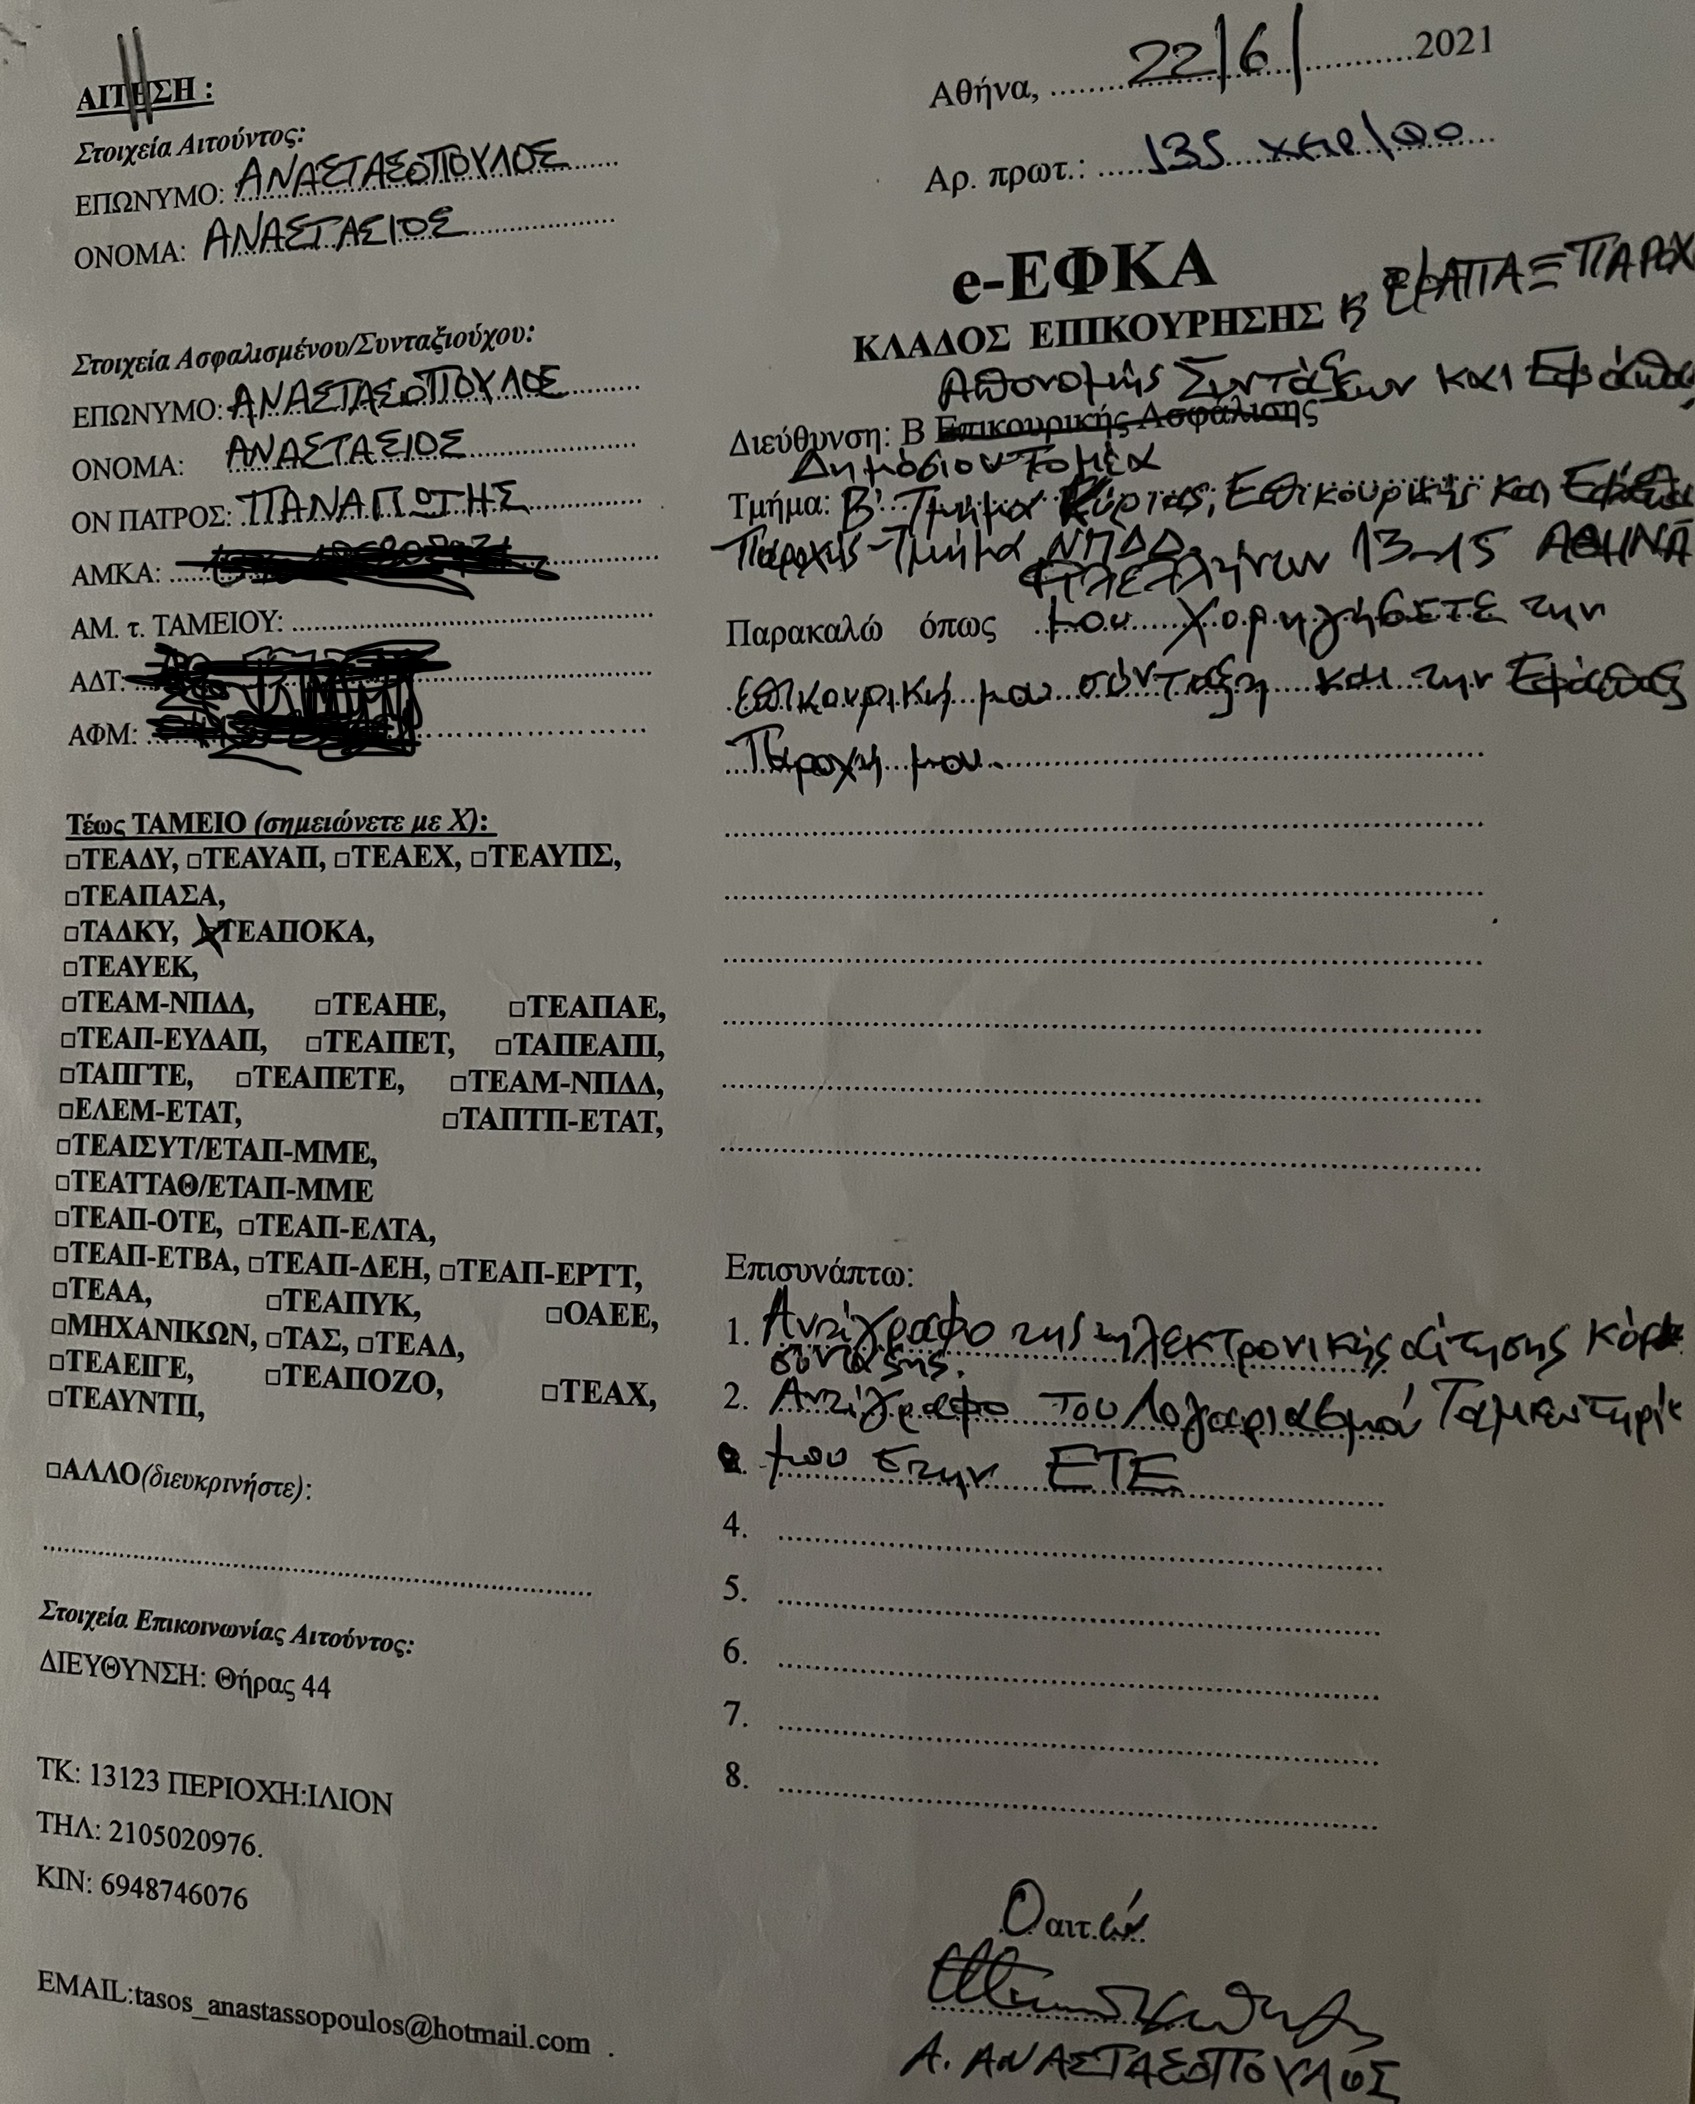 ΑΙΤΗΣΗ :
Στοιχεία Αιτούντος:
ΕΠΩΝΥΜΟ: ΑΝΑΣΤΑΣΟΠΟΥΛΟΣ
ΟΝΟΜΑ: ΑΝΑΣΤΑΣΙΟΣ
Στοιχεία Ασφαλισμένου/Συνταξιούχου:
ΕΠΩΝΥΜΟ: ΑΝΑΣΤΑΣΟΠΟΥΛΟΣ
ΟΝΟΜΑ: ΑΝΑΣΤΑΣΙΟΣ
ΟΝ ΠΑΤΡΟΣ: ΠΑΝΑΓΙΩΤΗΣ
ΑΜΚΑ:
ΑΜ. τ. ΤΑΜΕΙΟΥ:
ΑΔΤ:
ΑΦΜ:
Τέως ΤΑΜΕΙΟ (σημειώνετε με Χ):
□ΤΕΑΔΥ, □ΤΕΑΥΑΠ, □ΤΕΑΕΧ, □ΤΕΑΥΠΣ,
□ΤΕΑΠΑΣΑ,
□ΤΑΔΚΥ, ΧΤΕΑΠΟΚΑ,
□ΤΕΑΥΕΚ,
□ΤΕΑΜ-ΝΠΔΔ, □ΤΕΑΗΕ, □ΤΕΑΠΑΕ,
□ΤΕΑΠ-ΕΥΔΑΠ, □ΤΕΑΠΕΤ, □ΤΑΠΕΑΠΙ,
□ΤΑΠΓΤΕ, □ΤΕΑΠΕΤΕ, □ΤΕΑΜ-ΝΠΔΔ,
□ΕΛΕΜ-ΕΤΑΤ, □ΤΑΠΤΠ-ΕΤΑΤ,
□ΤΕΑΙΣΥΤ/ΕΤΑΠ-ΜΜΕ,
□ΤΕΑΤΤΑΘ/ΕΤΑΠ-ΜΜΕ
□ΤΕΑΠ-ΟΤΕ, □ΤΕΑΠ-ΕΛΤΑ,
□ΤΕΑΠ-ΕΤΒΑ, □ΤΕΑΠ-ΔΕΗ, □ΤΕΑΠ-ΕΡΤΤ,
□ΤΕΑΑ, □ΤΕΑΠΥΚ, □ΟΑΕΕ,
□ΜΗΧΑΝΙΚΩΝ, □ΤΑΣ, □ΤΕΑΔ,
□ΤΕΑΕΙΓΕ, □ΤΕΑΠΟΖΟ, □ΤΕΑΧ,
□ΤΕΑΥΝΤΠ,
□ΑΛΛΟ(διευκρινήστε):
Στοιχεία Επικοινωνίας Αιτούντος:
ΔΙΕΥΘΥΝΣΗ: Θήρας 44
ΤΚ: 13123 ΠΕΡΙΟΧΗ:ΙΛΙΟΝ
ΤΗΛ: 2105020976.
ΚΙΝ: 6948746076
EMAIL:tasos_anastassopoulos@hotmail.com .
Αθήνα, 22/6/ 2021
Αρ. πρωτ.: 135
e-ΕΦΚΑ
ΚΛΑΔΟΣ ΕΠΙΚΟΥΡΗΣΗΣ
Απονομής Συντάξεων και
Διεύθυνση: Β Επικουρικής Ασφάλισης
Δημόσιου Τομέα
Τμήμα: Β' Τμήμα Κύριας, Επικουρικής και
Παροχής-Τμήμα ΝΠΔΔ
Φιλελλήνων 13-15 ΑΘΗΝΑ
Παρακαλώ όπως μου χορηγήσετε την
επικουρική μου σύνταξη και την Εφάπαξ
Παροχή μου.
Επισυνάπτω:
1. Αντίγραφο της ηλεκτρονικής αίτησης
σύνταξης.
2. Αντίγραφο του Λογαριασμού
μου στην ΕΤΕ
4.
5.
6.
7.
8.
Ο αιτ.ών
Α. ΑΝΑΣΤΑΣΟΠΟΥΛΟΣ